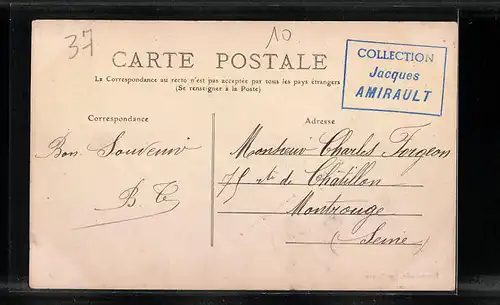 37
10
CARTE POSTALE
La Correspondance au recto n'est pas acceptée par tous les pays étrangers
(Se renseigner à la Poste)
COLLECTION
Jacques
AMIRAULT
Correspondance
Adresse
Bon Souvenir
Monsieur Charles Forgeon
75 rte de Châtillon
Montrouge
(Seine)